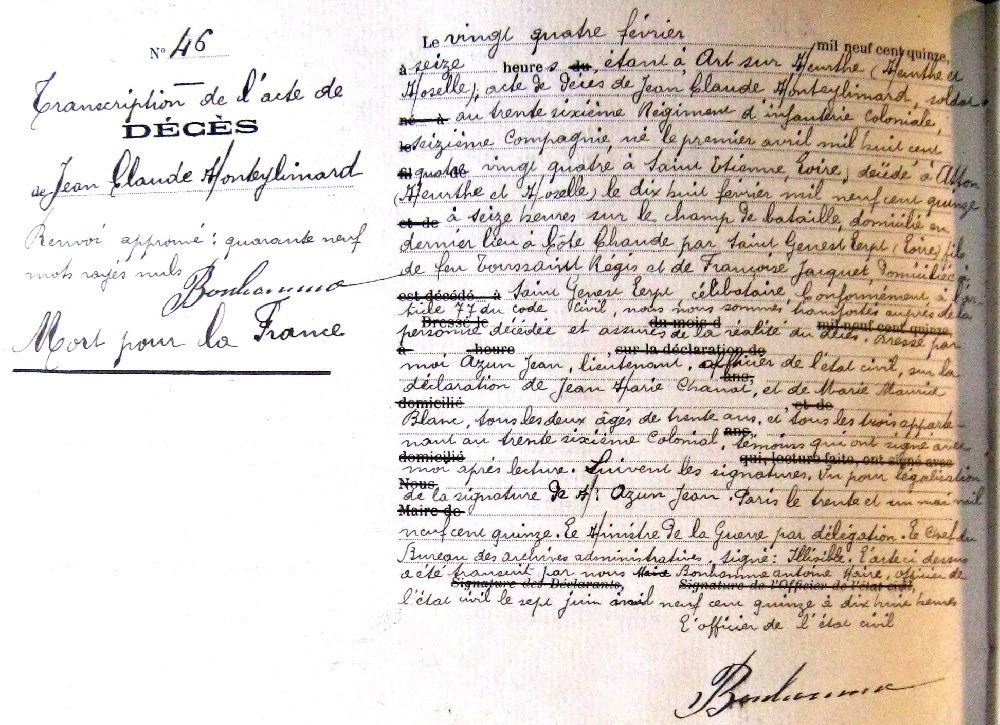 N° 46
Transcription de l'acte de
DÉCÈS
de Jean Claude Monteylimard
Renvoi approuvé : quarante neuf
mots rayés nuls
Bonhomme
Mort pour la France
Le vingt quatre février mil neuf cent quinze,
à seize heures du, étant à Art sur Meurthe (Meurthe et
Moselle), acte de décès de Jean Claude Monteylimard, soldat
né à au trente sixième Régiment d'infanterie Coloniale,
le seizième Compagnie, né le premier avril mil huit cent
fil quatre vingt quatre à Saint Etienne, Loire, décédé à
(Meurthe et Moselle) le dix huit février mil neuf cent quinze
et de à seize heures sur le champ de bataille, domicilié en
dernier lieu à Côte Chaude par Saint Genest Lerpt (Loire) fils
de feu Toussaint Régis et de Françoise Jacquet, domiciliée à
est décédé à Saint Genest Lerpt, célibataire, Conformément à l'ar
ticle 77 du code Civil, nous nous sommes transportés auprès de la
Dressé le du mois d mil neuf cent quinze,
personne décédée et assurés de la réalité du décès. Dressé par
à heure , sur la déclaration de
moi Azun Jean, lieutenant, officier de l'état civil, sur la
ans,
déclaration de Jean Marie Chanat, et de Marie Maurice
domicilié , et de
Blanc, tous les deux âgés de trente ans, et tous les trois apparte-
ans,
nant au trente sixième Colonial, témoins qui ont signé avec
domicilié qui, lecture faite, ont signé avec
moi après lecture. Suivent les signatures. Vu pour légalisation
Nous,
de la signature de M. Azun Jean. Paris le trente et un mai mil
Maire de
neuf cent quinze. Le Ministre de la Guerre par délégation. Le Chef du
Bureau des archives administratives, signé : Illisible. L'acte ci dessus
a été transcrit par nous Bonhomme antoine Maire, officier de
Signature des Déclarants, Signature de l'Officier de l'état civil,
l'état civil le sept juin mil neuf cent quinze à dix heures
L'officier de l'état civil
Bonhomme